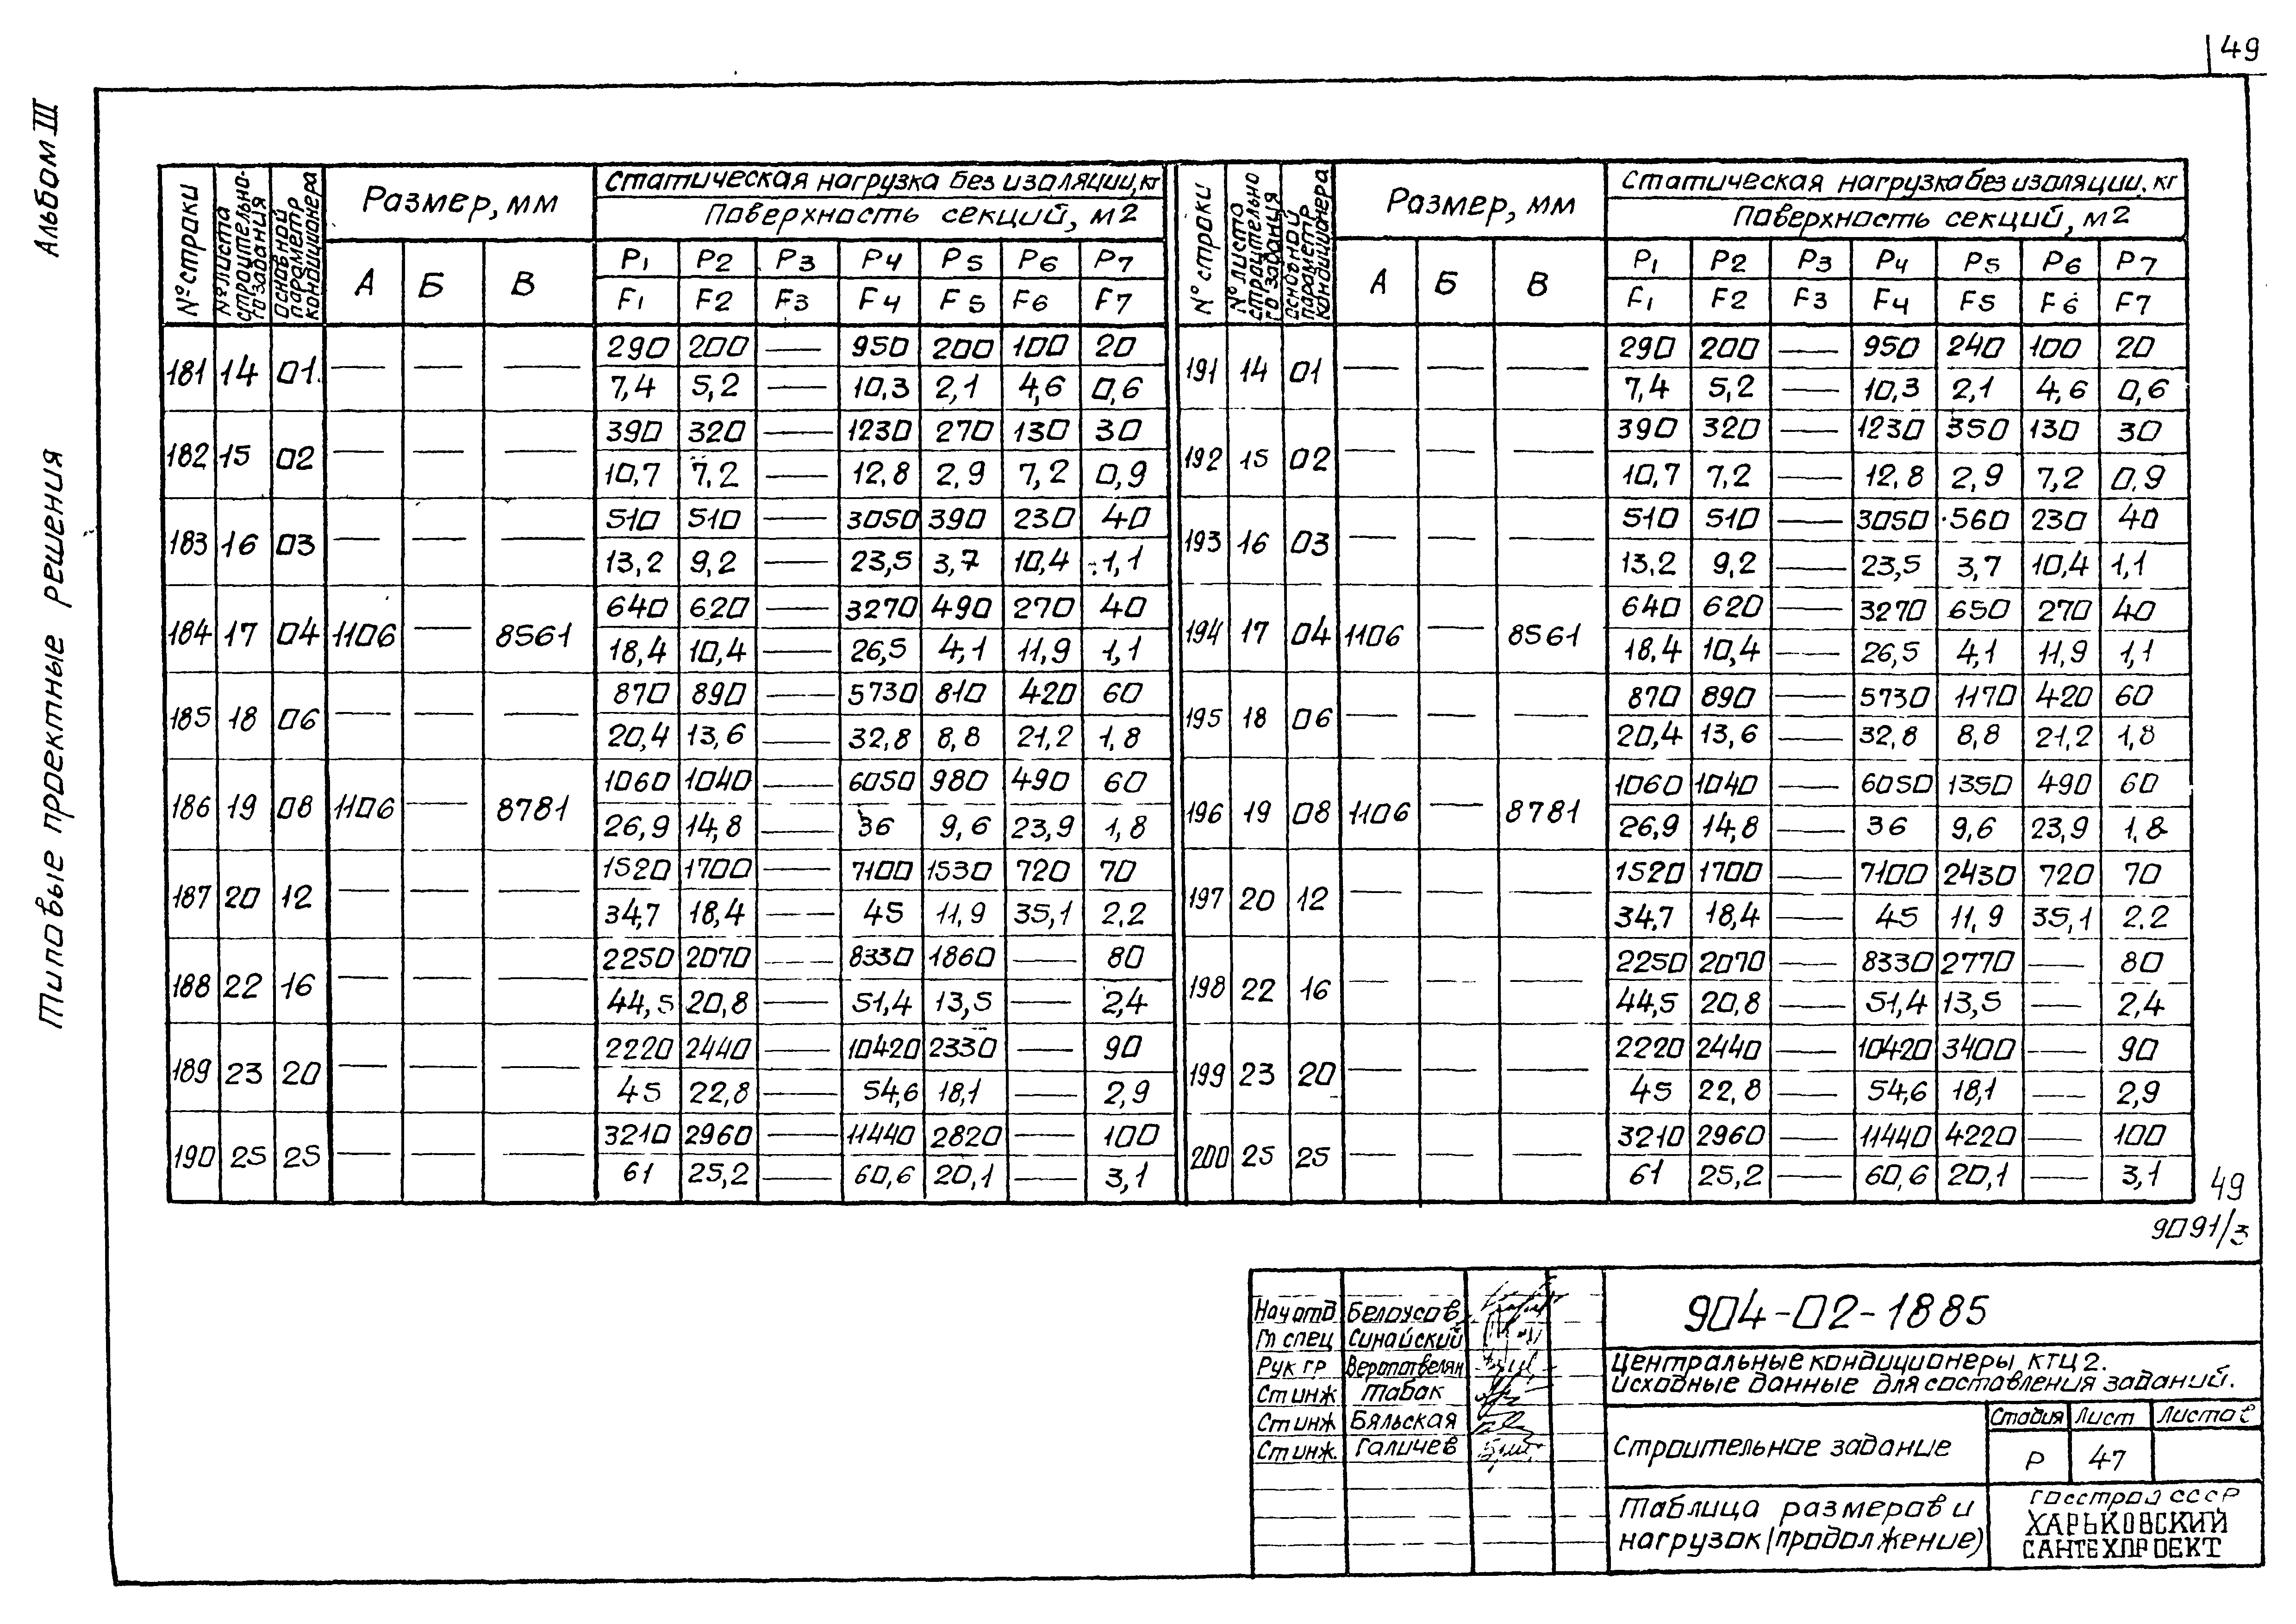 49
Альбом III
Типовые проектные решения
№ строки | № листа строительно-го задания | Основной параметр кондиционера | Размер, мм | Статическая нагрузка без изоляции, кг
Поверхность секций, м2
А | Б | В | P1 | P2 | P3 | P4 | P5 | P6 | P7
F1 | F2 | F3 | F4 | F5 | F6 | F7
181 | 14 | 01 | — | — | — | 290 | 200 | — | 950 | 200 | 100 | 20
7,4 | 5,2 | — | 10,3 | 2,1 | 4,6 | 0,6
182 | 15 | 02 | — | — | — | 390 | 320 | — | 1230 | 270 | 130 | 30
10,7 | 7,2 | — | 12,8 | 2,9 | 7,2 | 0,9
183 | 16 | 03 | — | — | — | 510 | 510 | — | 3050 | 390 | 230 | 40
13,2 | 9,2 | — | 23,5 | 3,7 | 10,4 | 1,1
184 | 17 | 04 | 1106 | — | 8561 | 640 | 620 | — | 3270 | 490 | 270 | 40
18,4 | 10,4 | — | 26,5 | 4,1 | 11,9 | 1,1
185 | 18 | 06 | — | — | — | 870 | 890 | — | 5730 | 810 | 420 | 60
20,4 | 13,6 | — | 32,8 | 8,8 | 21,2 | 1,8
186 | 19 | 08 | 1106 | — | 8781 | 1060 | 1040 | — | 6050 | 980 | 490 | 60
26,9 | 14,8 | — | 36 | 9,6 | 23,9 | 1,8
187 | 20 | 12 | — | — | — | 1520 | 1700 | — | 7100 | 1530 | 720 | 70
34,7 | 18,4 | — | 45 | 11,9 | 35,1 | 2,2
188 | 22 | 16 | — | — | — | 2250 | 2070 | — | 8330 | 1860 | — | 80
44,5 | 20,8 | — | 51,4 | 13,5 | — | 2,4
189 | 23 | 20 | — | — | — | 2220 | 2440 | — | 10420 | 2330 | — | 90
45 | 22,8 | — | 54,6 | 18,1 | — | 2,9
190 | 25 | 25 | — | — | — | 3210 | 2960 | — | 11440 | 2820 | — | 100
61 | 25,2 | — | 60,6 | 20,1 | — | 3,1
№ строки | № листа строительно го задания | Основной параметр кондиционера | Размер, мм | Статическая нагрузка без изоляции, кг
Поверхность секций, м2
А | Б | В | P1 | P2 | P3 | P4 | P5 | P6 | P7
F1 | F2 | F3 | F4 | F5 | F6 | F7
191 | 14 | 01 | — | — | — | 290 | 200 | — | 950 | 240 | 100 | 20
7,4 | 5,2 | — | 10,3 | 2,1 | 4,6 | 0,6
192 | 15 | 02 | — | — | — | 390 | 320 | — | 1230 | 350 | 130 | 30
10,7 | 7,2 | — | 12,8 | 2,9 | 7,2 | 0,9
193 | 16 | 03 | — | — | — | 510 | 510 | — | 3050 | 560 | 230 | 40
13,2 | 9,2 | — | 23,5 | 3,7 | 10,4 | 1,1
194 | 17 | 04 | 1106 | — | 8561 | 640 | 620 | — | 3270 | 650 | 270 | 40
18,4 | 10,4 | — | 26,5 | 4,1 | 11,9 | 1,1
195 | 18 | 06 | — | — | — | 870 | 890 | — | 5730 | 1170 | 420 | 60
20,4 | 13,6 | — | 32,8 | 8,8 | 21,2 | 1,8
196 | 19 | 08 | 1106 | — | 8781 | 1060 | 1040 | — | 6050 | 1350 | 490 | 60
26,9 | 14,8 | — | 36 | 9,6 | 23,9 | 1,8
197 | 20 | 12 | — | — | — | 1520 | 1700 | — | 7100 | 2430 | 720 | 70
34,7 | 18,4 | — | 45 | 11,9 | 35,1 | 2.2
198 | 22 | 16 | — | — | — | 2250 | 2070 | — | 8330 | 2770 | — | 80
44,5 | 20,8 | — | 51,4 | 13,5 | — | 2,4
199 | 23 | 20 | — | — | — | 2220 | 2440 | — | 10420 | 3400 | — | 90
45 | 22,8 | — | 54,6 | 18,1 | — | 2,9
200 | 25 | 25 | — | — | — | 3210 | 2960 | — | 11440 | 4220 | — | 100
61 | 25,2 | — | 60,6 | 20,1 | — | 3,1
49
9091/3
Нач отд Белоусов
Гл спец Синайский
Рук гр Веропотвелян
Ст инж Табак
Ст инж Бяльская
Ст инж. Галичев
904-02-1885
Центральные кондиционеры КТЦ 2.
Исходные данные для составления заданий.
Строительное задание
Стадия | Лист | Листов
Р | 47
Таблица размеров и
нагрузок (продолжение)
Госстрой СССР
ХАРЬКОВСКИЙ
САНТЕХПРОЕКТ